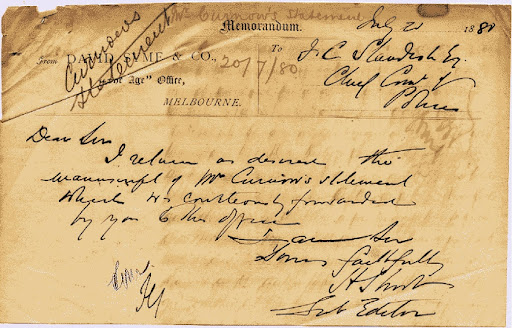 Mr Curnow's Statement
Curnow's
Statement
Memorandum.
July 20 1880
From DAVID SYME & CO.,
20/7/80
"The Age" Office,
MELBOURNE.
To
F C Standish Esq
Chief Comr of
Police
Dear Sir
I return as desired the
manuscript of Mr Curnow's statement
which was courteously forwarded
by you to this office
I am Sir
Yours faithfully
Sub Editor